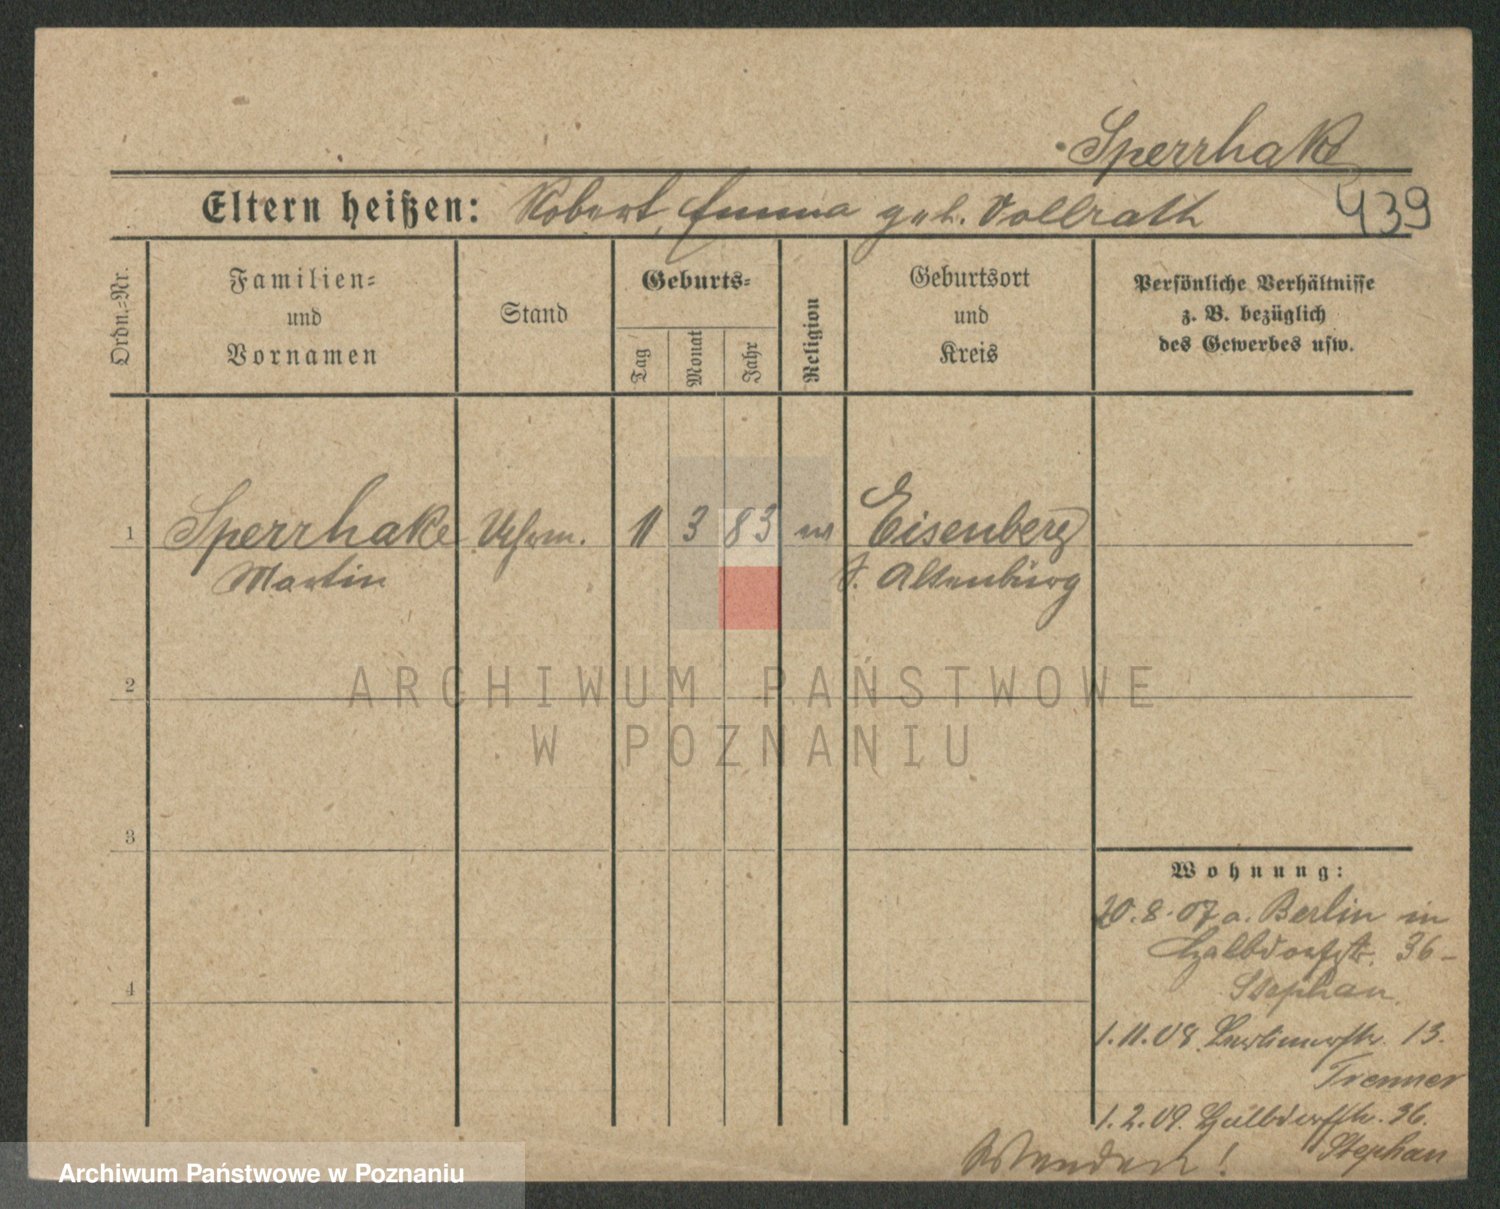 Sperrhake
439
Eltern heißen: Robert, Emma geb. Vollrath
Ordn.-Nr.
Familien- und Vornamen
Stand
Geburts-
Tag
Monat
Jahr
Religion
Geburtsort und Kreis
Persönliche Verhältnisse z. B. bezüglich des Gewerbes usw.
1 Sperrhake 11 3 83 Eisenberg
Martin S. Altenburg
2
3
4
Wohnung:
20.8.07 a. Berlin in
Halbdorfstr. 36 -
Stephan
1.11.08. Berlinerstr. 13.
Trenner
1.2.09. Halbdorfstr. 36.
Stephan
Wenden!
ARCHIWUM PAŃSTWOWE
W POZNANIU
Archiwum Państwowe w Poznaniu